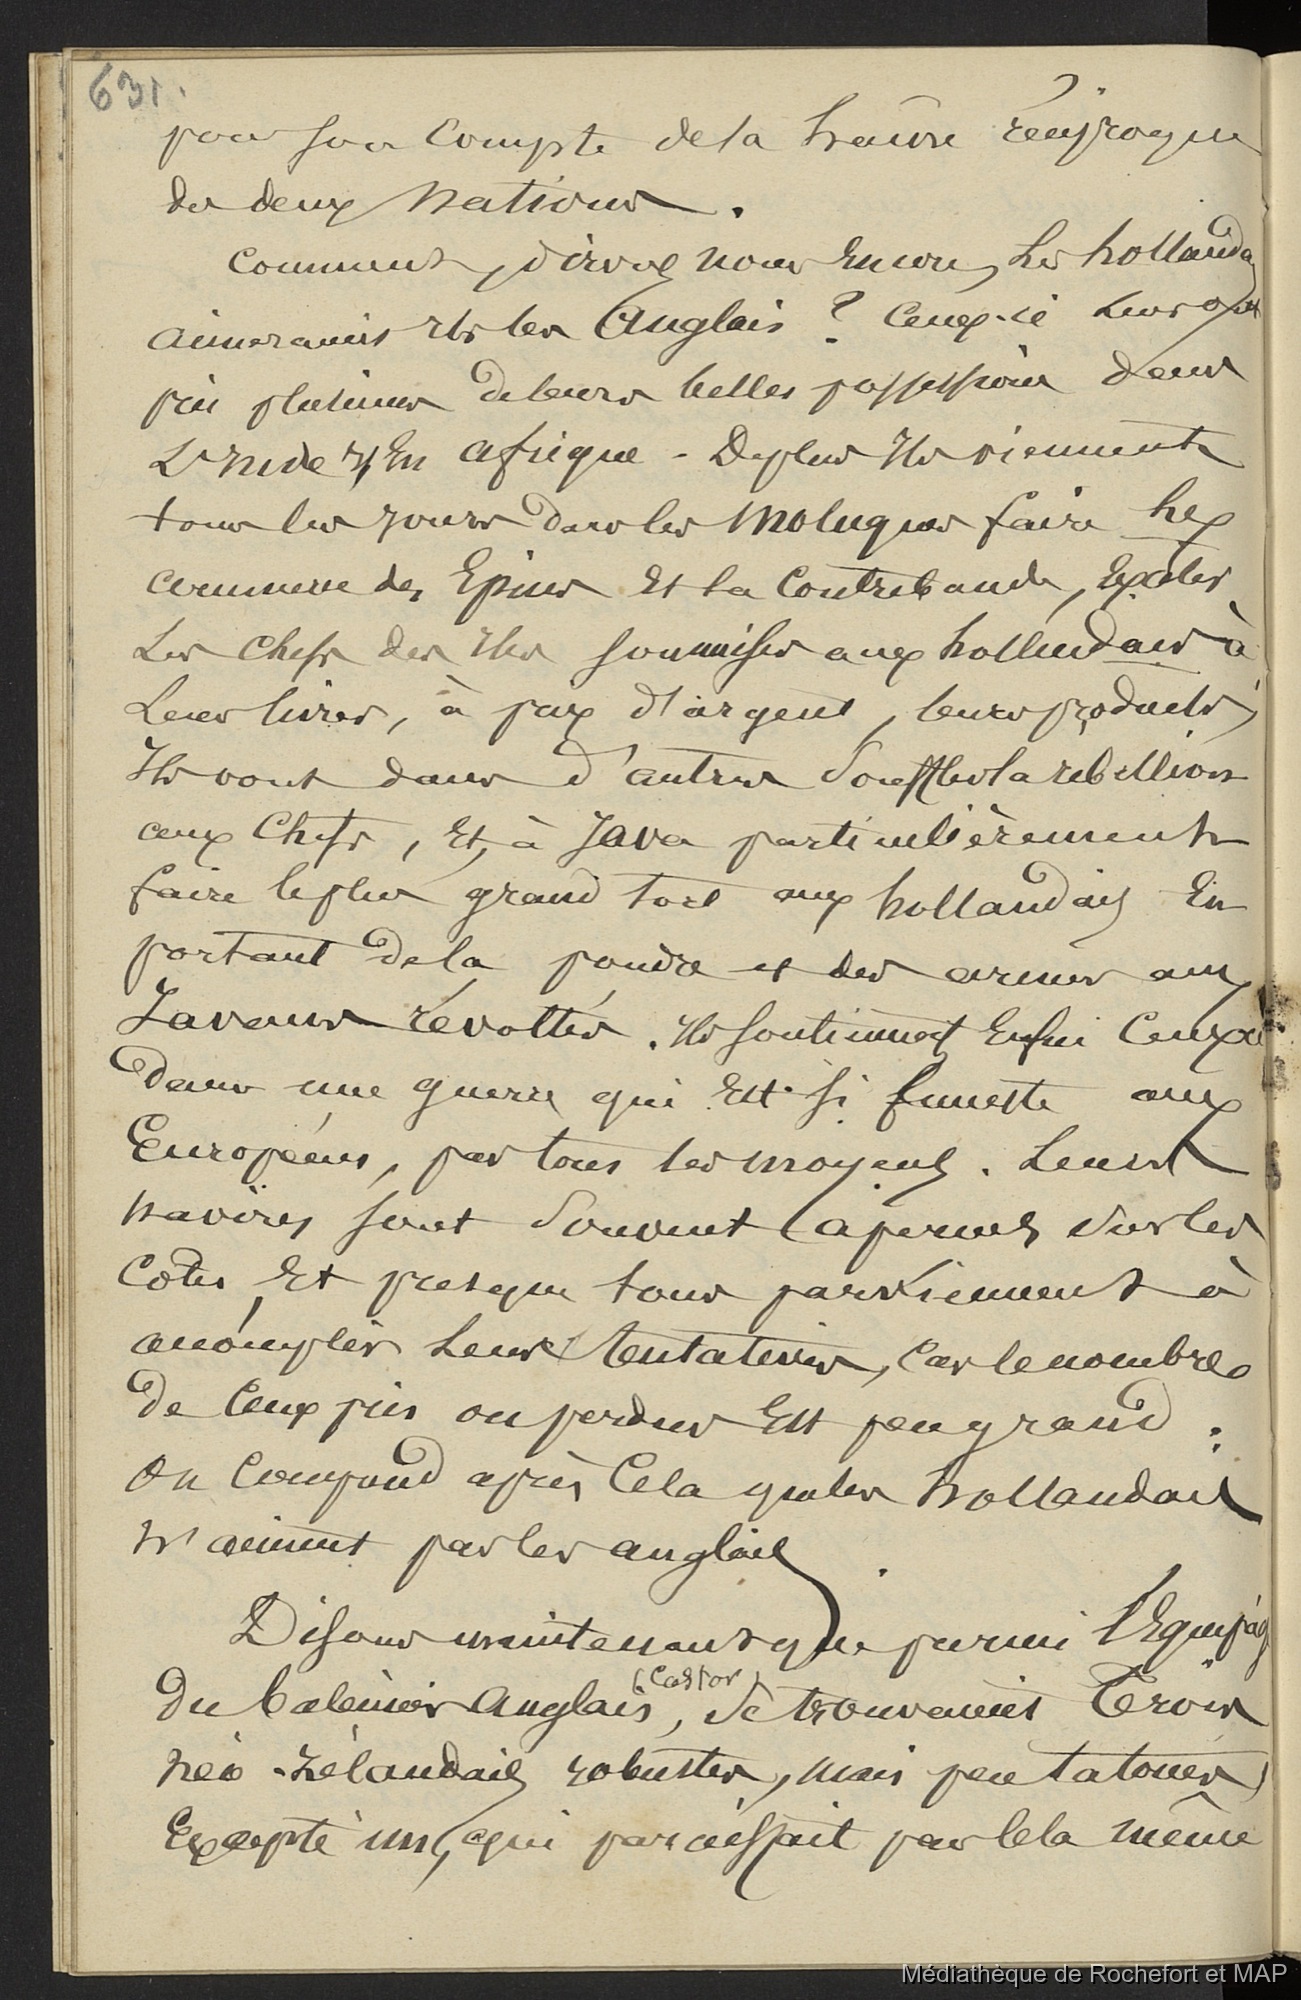 631.
pour son compte de la haine réciproque
des deux nations.
Comment, dirval nous encore, les hollandais
aimeraient ils les Anglais ? Ceux-ci leur ont
pris plusieurs de leurs belles possessions dans
L'Inde et en afrique - De plus Ils viennent
tous les jours dans les Moluques faire le
commerce des Epices et la Contrebande, Exciter
Les Chefs des Iles soumises aux hollandais à
Leur livrer, à prix d'argent, leurs produits,
Ils vont dans d'autres souffler la rébellion
aux Chefs, Et, à Java particulièrement
faire le plus grand tort aux hollandais En
portant de la poudre et des armes aux
Javanais révoltés. Ils soutiennent Enfin Ceux ci
dans une guerre qui Est si funeste aux
Européens, par tous les moyens. Leurs
navires sont souvent aperçus sur les
Côtes, Et presque tous parviennent à
accomplir Leurs tentatives, Car le nombre
de Ceux pris ou perdus Est peu grand.
On Comprend après Cela que les hollandais
n'aiment pas les anglais.
Disons maintenant que parmi l'Equipage
Du baleinier Anglais, (Castor) se trouvaient trois
néo-zélandais robustes, mais peu tatoués,
Excepté un, qui paraissait par cela même
Médiathèque de Rochefort et MAP